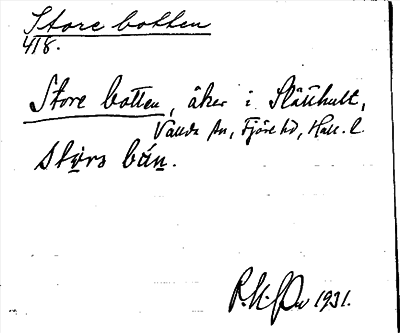 Store botten
418.
Store botten, åker i Slätthult,
Vallda sn, Fjäre hd, Hall. l.
störs bán.
1931.